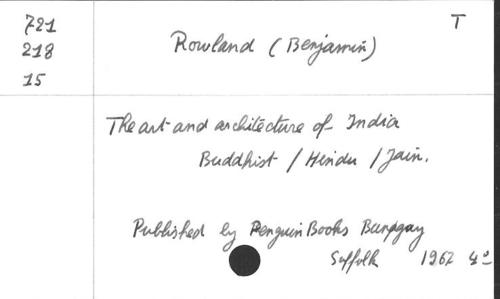 721
218
15
T
Rowland (Benjamin)
The art and architecture of India
Buddhist / Hindu / Jain.
Published by Penguin Books Bungay
Suffolk 1967 4°